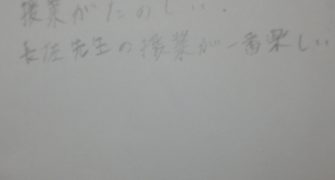 授業がたのしい.
長征先生の授業が一番楽しい